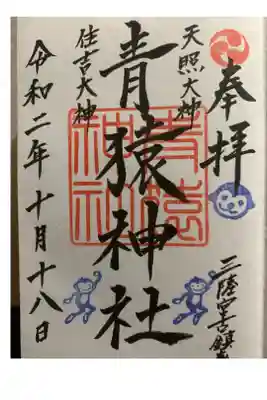 奉拝
天照大神
青猿神社
住吉大神
令和二年十月十八日
青猿
神社